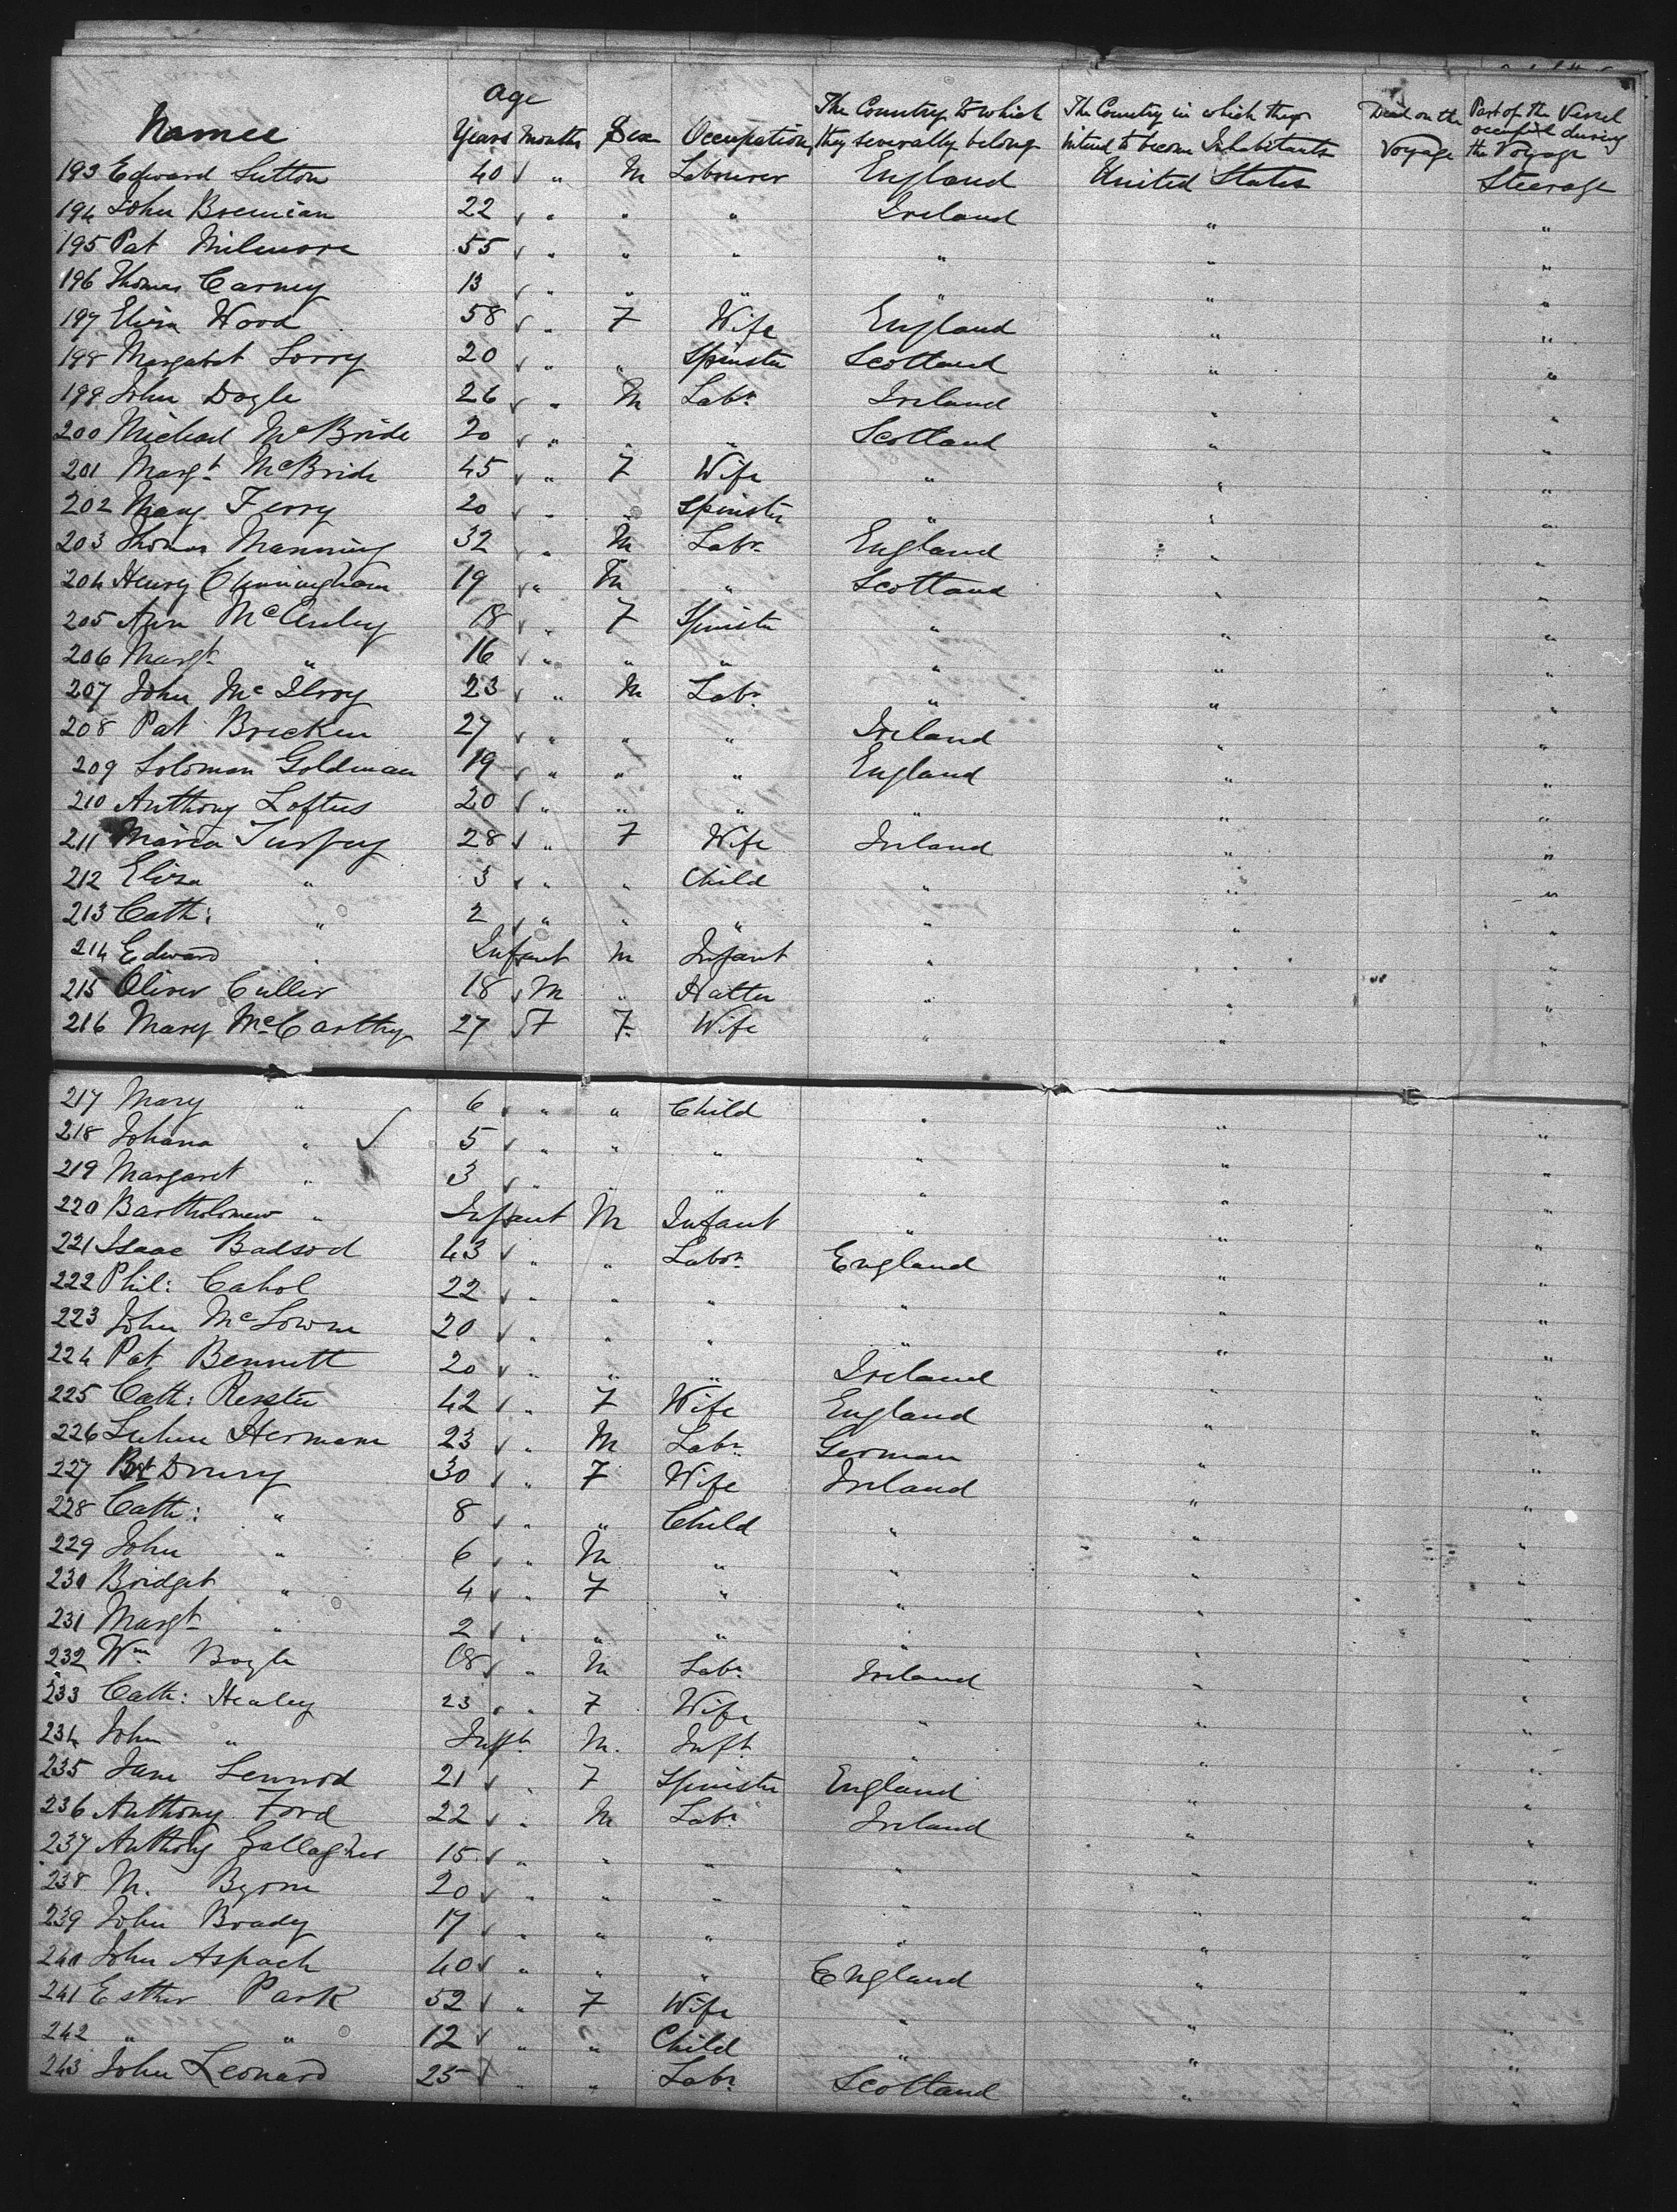 Names Age Years Months Sex Occupation The Country to which they severally belong The Country in which they intend to become Inhabitants Died on the Voyage Part of the Vessel occupied during the Voyage
193 Edward Sutton 40 " M Labourer England United States Steerage
194 John Brennan 22 " " " Ireland " "
195 Pat Milmore 55 " " " " " "
196 Thomas Carney 13 " " " " " "
197 Eliza Wood 58 " F Wife England " "
198 Margabet Lorry 20 " " Spinster Scotland " "
199 John Doyle 26 " M Labr Ireland " "
200 Michael McBride 20 " " " Scotland " "
201 Margt McBride 45 " F Wife " " "
202 Mary Ferry 20 " " Spinster " " "
203 Thomas Manning 32 " M Labr England " "
204 Henry Cunningham 19 " M " Scotland " "
205 Ann McAuley 18 " F Spinster " " "
206 Margt " 16 " " " " " "
207 John McIlroy 23 " M Labr " " "
208 Pat Bricken 27 " " " Ireland " "
209 Solomon Goldman 19 " " " England " "
210 Anthony Loftus 20 " " " " "
211 Maria Turpey 28 " F Wife Ireland " "
212 Eliza " 3 " " Child " " "
213 Cath: " 2 " " " " " "
214 Edward " Infant M Infant " " "
215 Oliver Culler 18 M " Hatter " " "
216 Mary McCarthy 27 F F Wife " " "
217 Mary " 6 " " Child " " "
218 Johana " 5 " " " " " "
219 Margaret " 3 " " " " " "
220 Bartholomew " Infant M Infant " " "
221 Isaac 43 " " Labor England " "
222 Phil: Cahol 22 " " " " " "
223 John McLowne 20 " " " " "
224 Pat Bennett 20 " " " Ireland " "
225 Cath: 42 " F Wife England " "
226 Hermann 23 " M Labr German " "
227 Drury 30 " F Wife Ireland " "
228 Cath: " 8 " " Child " " "
229 John " 6 " M " " " "
230 Bridget " 4 " F " " " "
231 Margt " 2 " " " " " "
232 Wm Boyle 18 " M Labr Ireland " "
233 Cath: Healey 23 " F Wife " " "
234 John " Inft. M. Inft. " " "
235 Jane Lennod 21 " F Spinster England " "
236 Anthony Ford 22 " M Labr Ireland " "
237 Anthony Gallagher 15 " " " " " "
238 M. Byrne 20 " " " " " "
239 John Brady 17 " " " " " "
240 John Aspach 40 " " " England " "
241 Esther Park 52 " F Wife " " "
242 " " 12 " " Child " " "
243 John Leonard 25 " " Labr Scotland " "